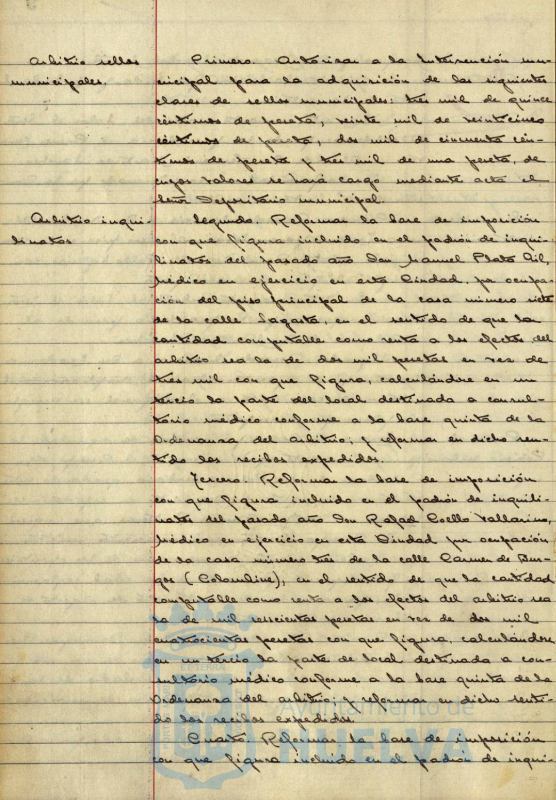 Arbitrio sellos
municipales.
Primero. Autorizar a la Intervención mu-
nicipal para la adquisición de las siguientes
clases de sellos municipales: tres mil de quince
céntimos de peseta, veinte mil de veinticinco
céntimos de peseta, dos mil de cincuenta cén-
timos de peseta y tres mil de una peseta, de
cuyos valores se hará cargo mediante acta el
Señor Depositario municipal.
Arbitrio inqui-
linatos
Segundo. Reformar la base de imposición
con que figura incluido en el padrón de inqui-
linatos del pasado año Don Manuel Plata Gil,
Médico en ejercicio en esta Ciudad, pa ocupa-
ción del piso principal de la casa número siete
de la calle Sagasta, en el sentido de que la
cantidad computable como renta a los efectos del
arbitrio sea la de dos mil pesetas en vez de
tres mil con que figura, calculándose en un
tercio la parte del local destinada a consul-
torio médico conforme a la base quinta de la
Ordenanza del arbitrio; y reformar en dicho sen-
tido los recibos expedidos.
Tercero. Reformar la base de imposición
con que figura incluido en el padrón de inquili-
natos del pasado año Don Rafael Coello Vallarino,
Médico en ejercicio en esta Ciudad por ocupación
de la casa número tres de la calle Carmen de Bur-
gos (Colombine), en el sentido de que la cantidad
computable como renta a los efectos del arbitrio sea
la de mil seiscientas pesetas en vez de dos mil
cuatrocientas pesetas con que figura, calculándose
en un tercio la parte de local destinada a con-
sultorio médico conforme a la base quinta de la
Ordenanza del arbitrio; y reformar en dicho senti-
do los recibos expedidos.
Cuarto. Reformar la base de imposición
con que figura incluido en el padrón de inqui-
Ayuntamiento de
HUELVA